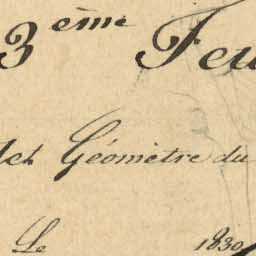 3ème Feu
Géomètre du
Le 1830